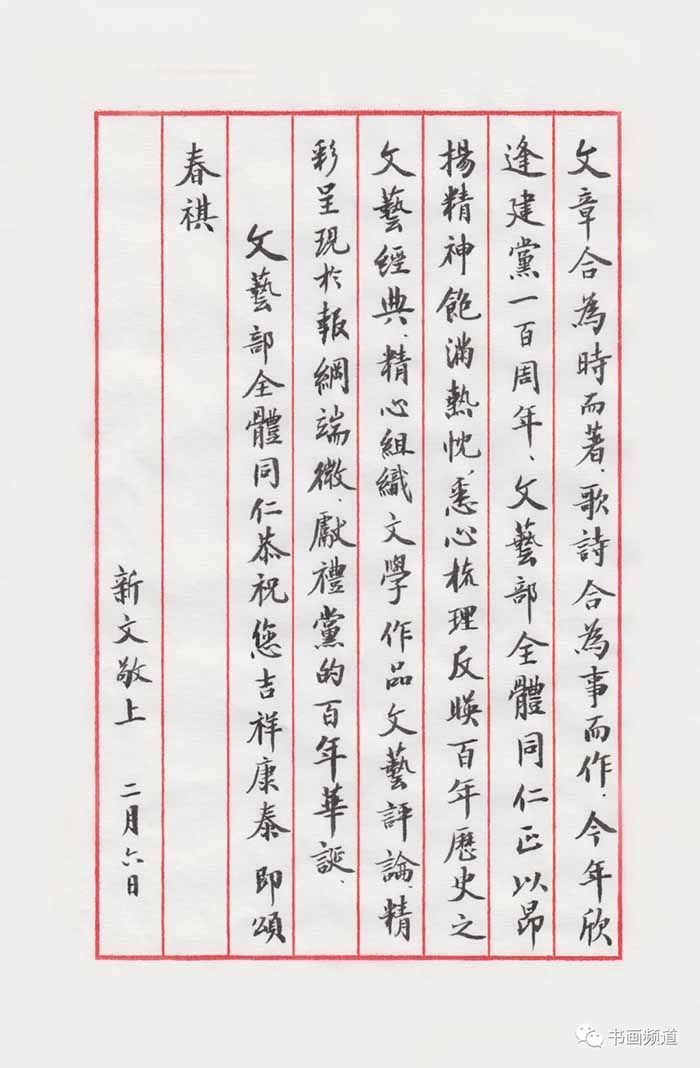 文章合為時而著、歌詩合為事而作、今年欣
逢建黨一百周年、文藝部全體同仁正以昂
揚精神飽滿熱忱、悉心梳理反映百年歷史之
文藝經典、精心組織文學作品文藝評論、精
彩呈現於報網端微、獻禮黨的百年華誕、
文藝部全體同仁恭祝您吉祥康泰 即頌
春祺
新文敬上 二月六日
书画频道